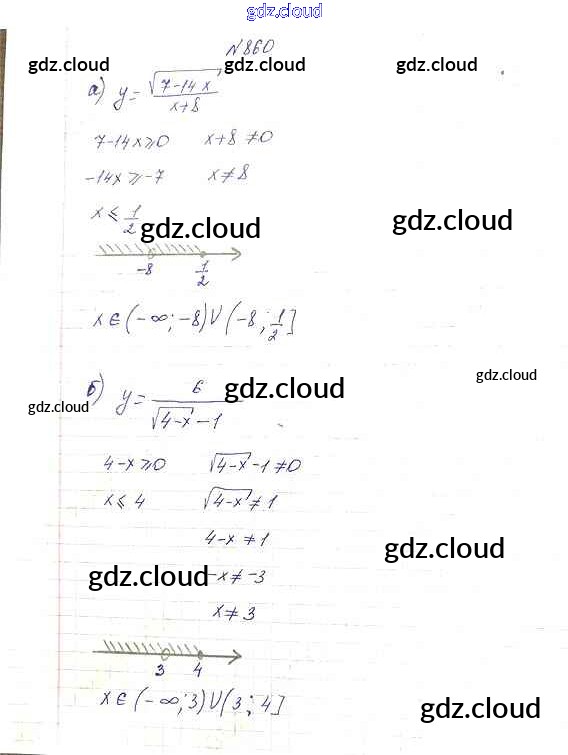 gdz.cloud
№860
gdz.cloud gdz.cloud gdz.cloud
а) y = √(7-14x) / x+8
7-14x ⩾ 0 x+8 ≠ 0
-14x ⩾ -7 x ≠ 8
x ⩽ 1/2
gdz.cloud gdz.cloud
-8 1/2
x ∈ (-∞; -8) ∪ (-8; 1/2]
б) y = 6 / √(4-x) - 1
gdz.cloud gdz.cloud gdz.cloud
4-x ⩾ 0 √(4-x) - 1 ≠ 0
x ⩽ 4 √(4-x) ≠ 1
4-x ≠ 1
gdz.cloud
gdz.cloud -x ≠ -3
x ≠ 3
3 4
x ∈ (-∞; 3) ∪ (3; 4]
gdz.cloud